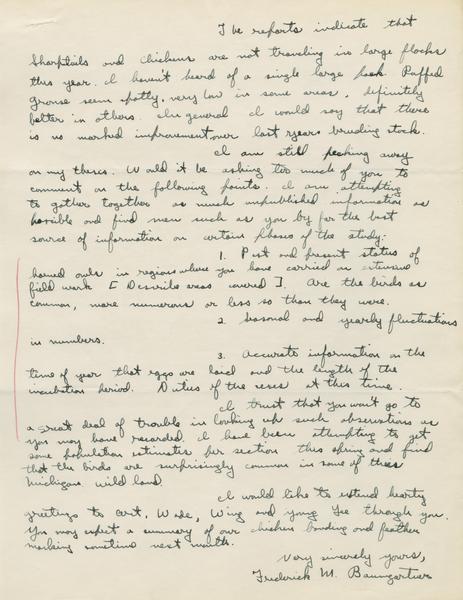 The reports indicate that
Sharptails and chickens are not traveling in large flocks
this year. I haven't heard of a single large pack. Ruffed
Grouse seem spotty, very low in some areas, definitely
better in others. In general I would say that there
is no marked improvement over last years breeding stock.
I am still pecking away
on my thesis. Would it be asking too much of you to
comment on the following points. I am attempting
to gather together as much unpublished information as
possible and find men such as you by far the best
source of information on certain phases of the study.
1. Past and present status of
horned owls in regions where you have carried on extensive
field work [Describe areas covered]. Are the birds as
common, more numerous or less so than they were.
2. Seasonal and yearly fluctuations
in numbers.
3. Accurate information on the
time of year that eggs are laid and the length of the
incubation period. Duties of the sexes at this time.
I trust that you won't go to
a great deal of trouble in looking up such observations as
you may have recorded. I have been attempting to get
some population estimates per section this spring and find
that the birds are surprisingly common in some of these
Michigan wild land.
I would like to extend hearty
greetings to Art, Wade, Wing and young Lee through you.
You may expect a summary of our chicken banding and feather
marking sometime next month.
Very sincerely yours,
Frederick M. Baumgartner